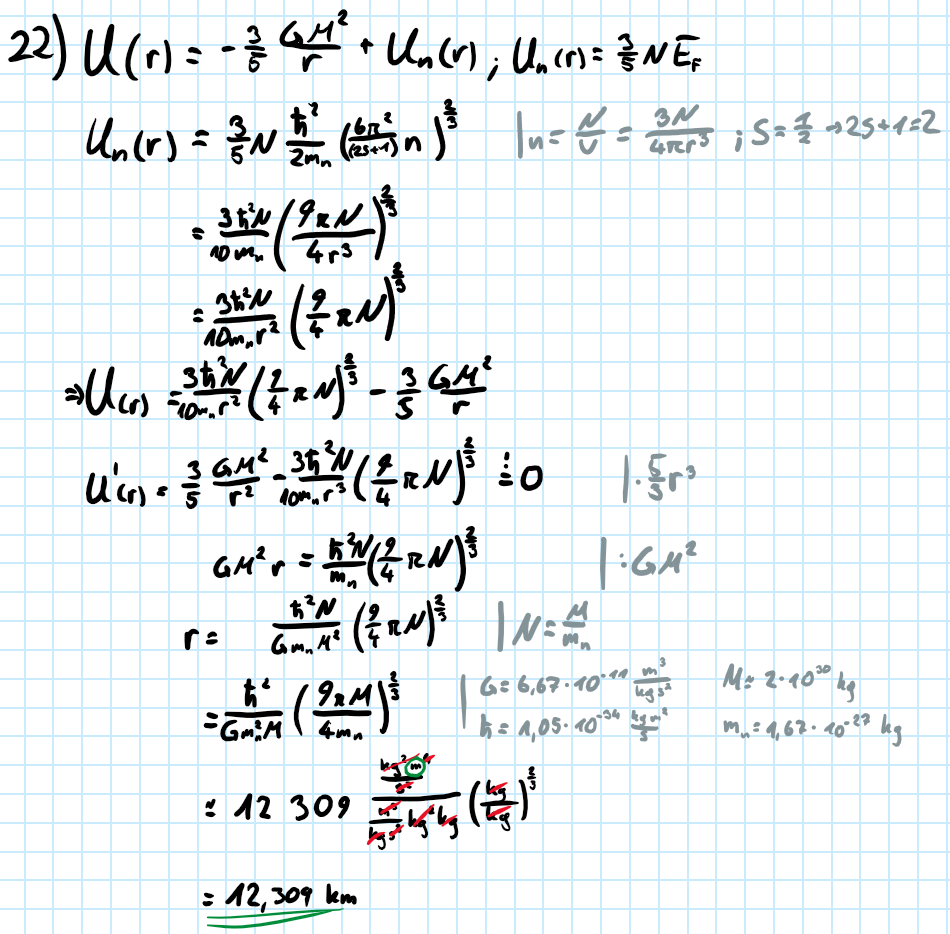 22) U(r) = -3/5 GM²/r + Uₙ(r) ; Uₙ(r) = 3/5 N E_F
Uₙ(r) = 3/5 N ħ²/2mₙ (6π²/(2s+1) n)^(2/3) | n = N/V = 3N/4πr³ ; S = 1/2 → 2s+1=2
= 3ħ²N/10mₙ (9πN/4r³)^(2/3)
= 3ħ²N/10mₙr² (9/4 πN)^(2/3)
⇒ U(r) = 3ħ²N/10mₙr² (9/4 πN)^(2/3) - 3/5 GM²/r
U'(r) = 3/5 GM²/r² - 3ħ²N/10mₙr³ (9/4 πN)^(2/3) != 0 | · 5/3 r³
GM²r = ħ²N/mₙ (9/4 πN)^(2/3) | : GM²
r = ħ²N/GmₙM² (9/4 πN)^(2/3) | N = M/mₙ
= ħ²/Gmₙ²M (9πM/4mₙ)^(2/3) | G = 6,67·10⁻¹¹ m³/kg s² M = 2·10³⁰ kg
ħ = 1,05·10⁻³⁴ kg m²/s mₙ = 1,67·10⁻²⁷ kg
= 12 309 (kg² m⁴/s²)/(m³/kg s² kg² kg) (kg/kg)^(2/3)
= 12,309 km